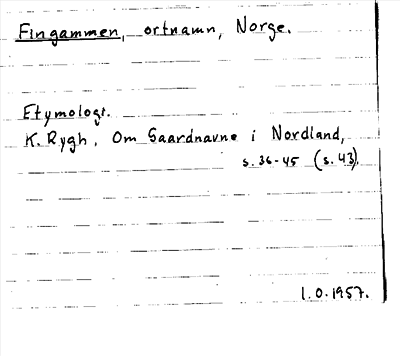 Fingammen, ortnamn, Norge.
Etymologi.
K. Rygh. Om Gaardnavne i Nordland,
s. 36-45 (s. 43).
1.0.1957.